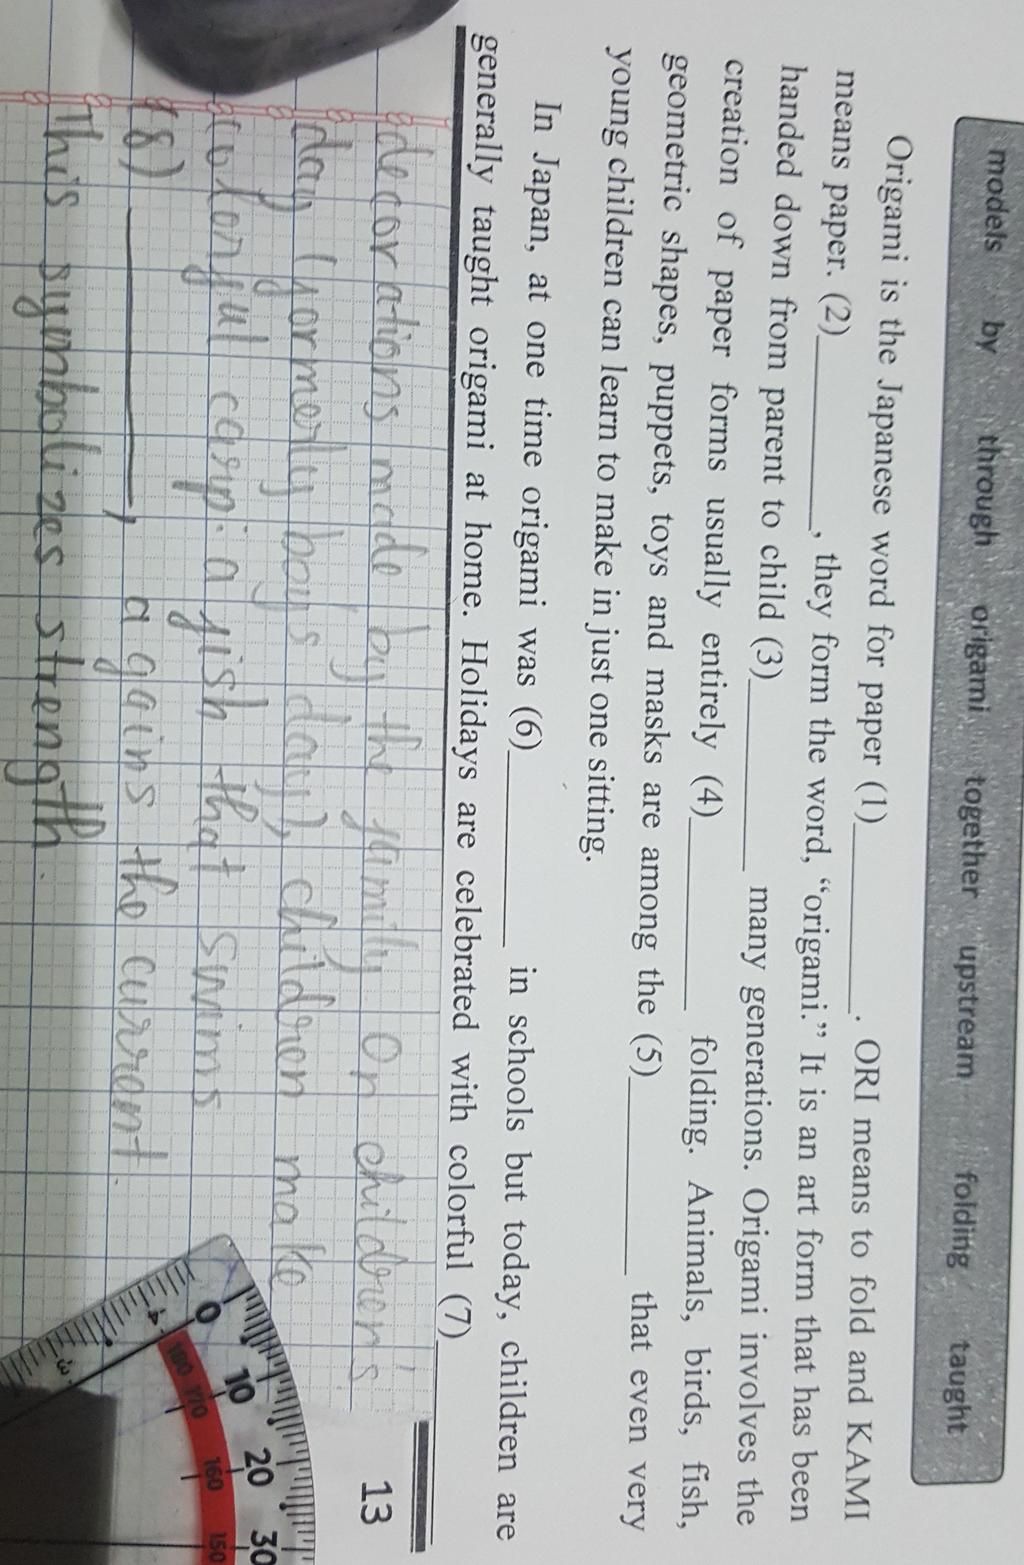 models by through origami together upstream folding taught
Origami is the Japanese word for paper (1)__________. ORI means to fold and KAMI
means paper. (2)__________, they form the word, “origami.” It is an art form that has been
handed down from parent to child (3)__________ many generations. Origami involves the
creation of paper forms usually entirely (4)__________ folding. Animals, birds, fish,
geometric shapes, puppets, toys and masks are among the (5)__________ that even very
young children can learn to make in just one sitting.
In Japan, at one time origami was (6)__________ in schools but today, children are
generally taught origami at home. Holidays are celebrated with colorful (7)__________
decorations made by the family on children's
day (formerly boys day), children make
colorful carp. a fish that swims
(8) __________, agains the current.
This symbolizes strength.
13
0 10 20 30
180 170 160 150
4 3